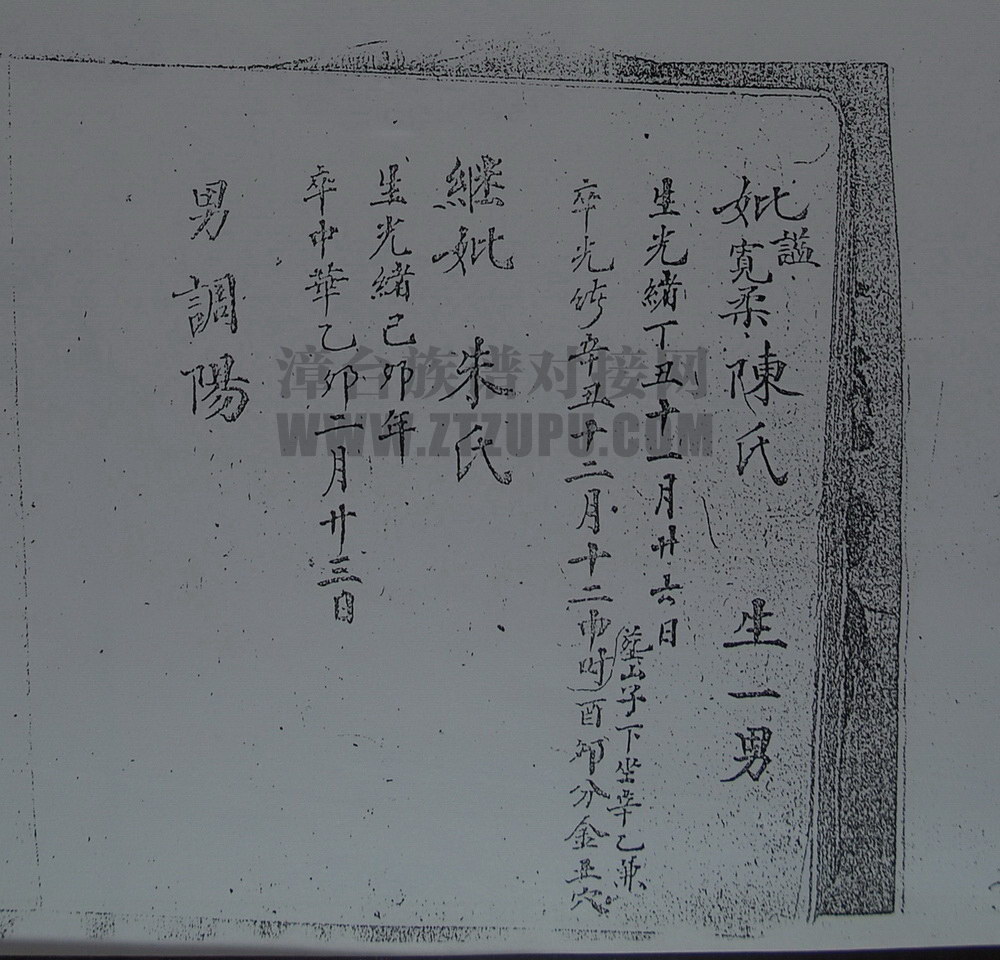 妣諡寬柔陳氏 生一男
生光緒丁丑十一月廿六日
卒光緒辛丑十二月十二 時
葬山子下坐辛乙兼
酉卯分金 穴
継妣 朱氏
生光緒己卯年
卒中華乙卯二月廿三日
男調陽
漳台族谱对接网
WWW.ZTZUPU.COM